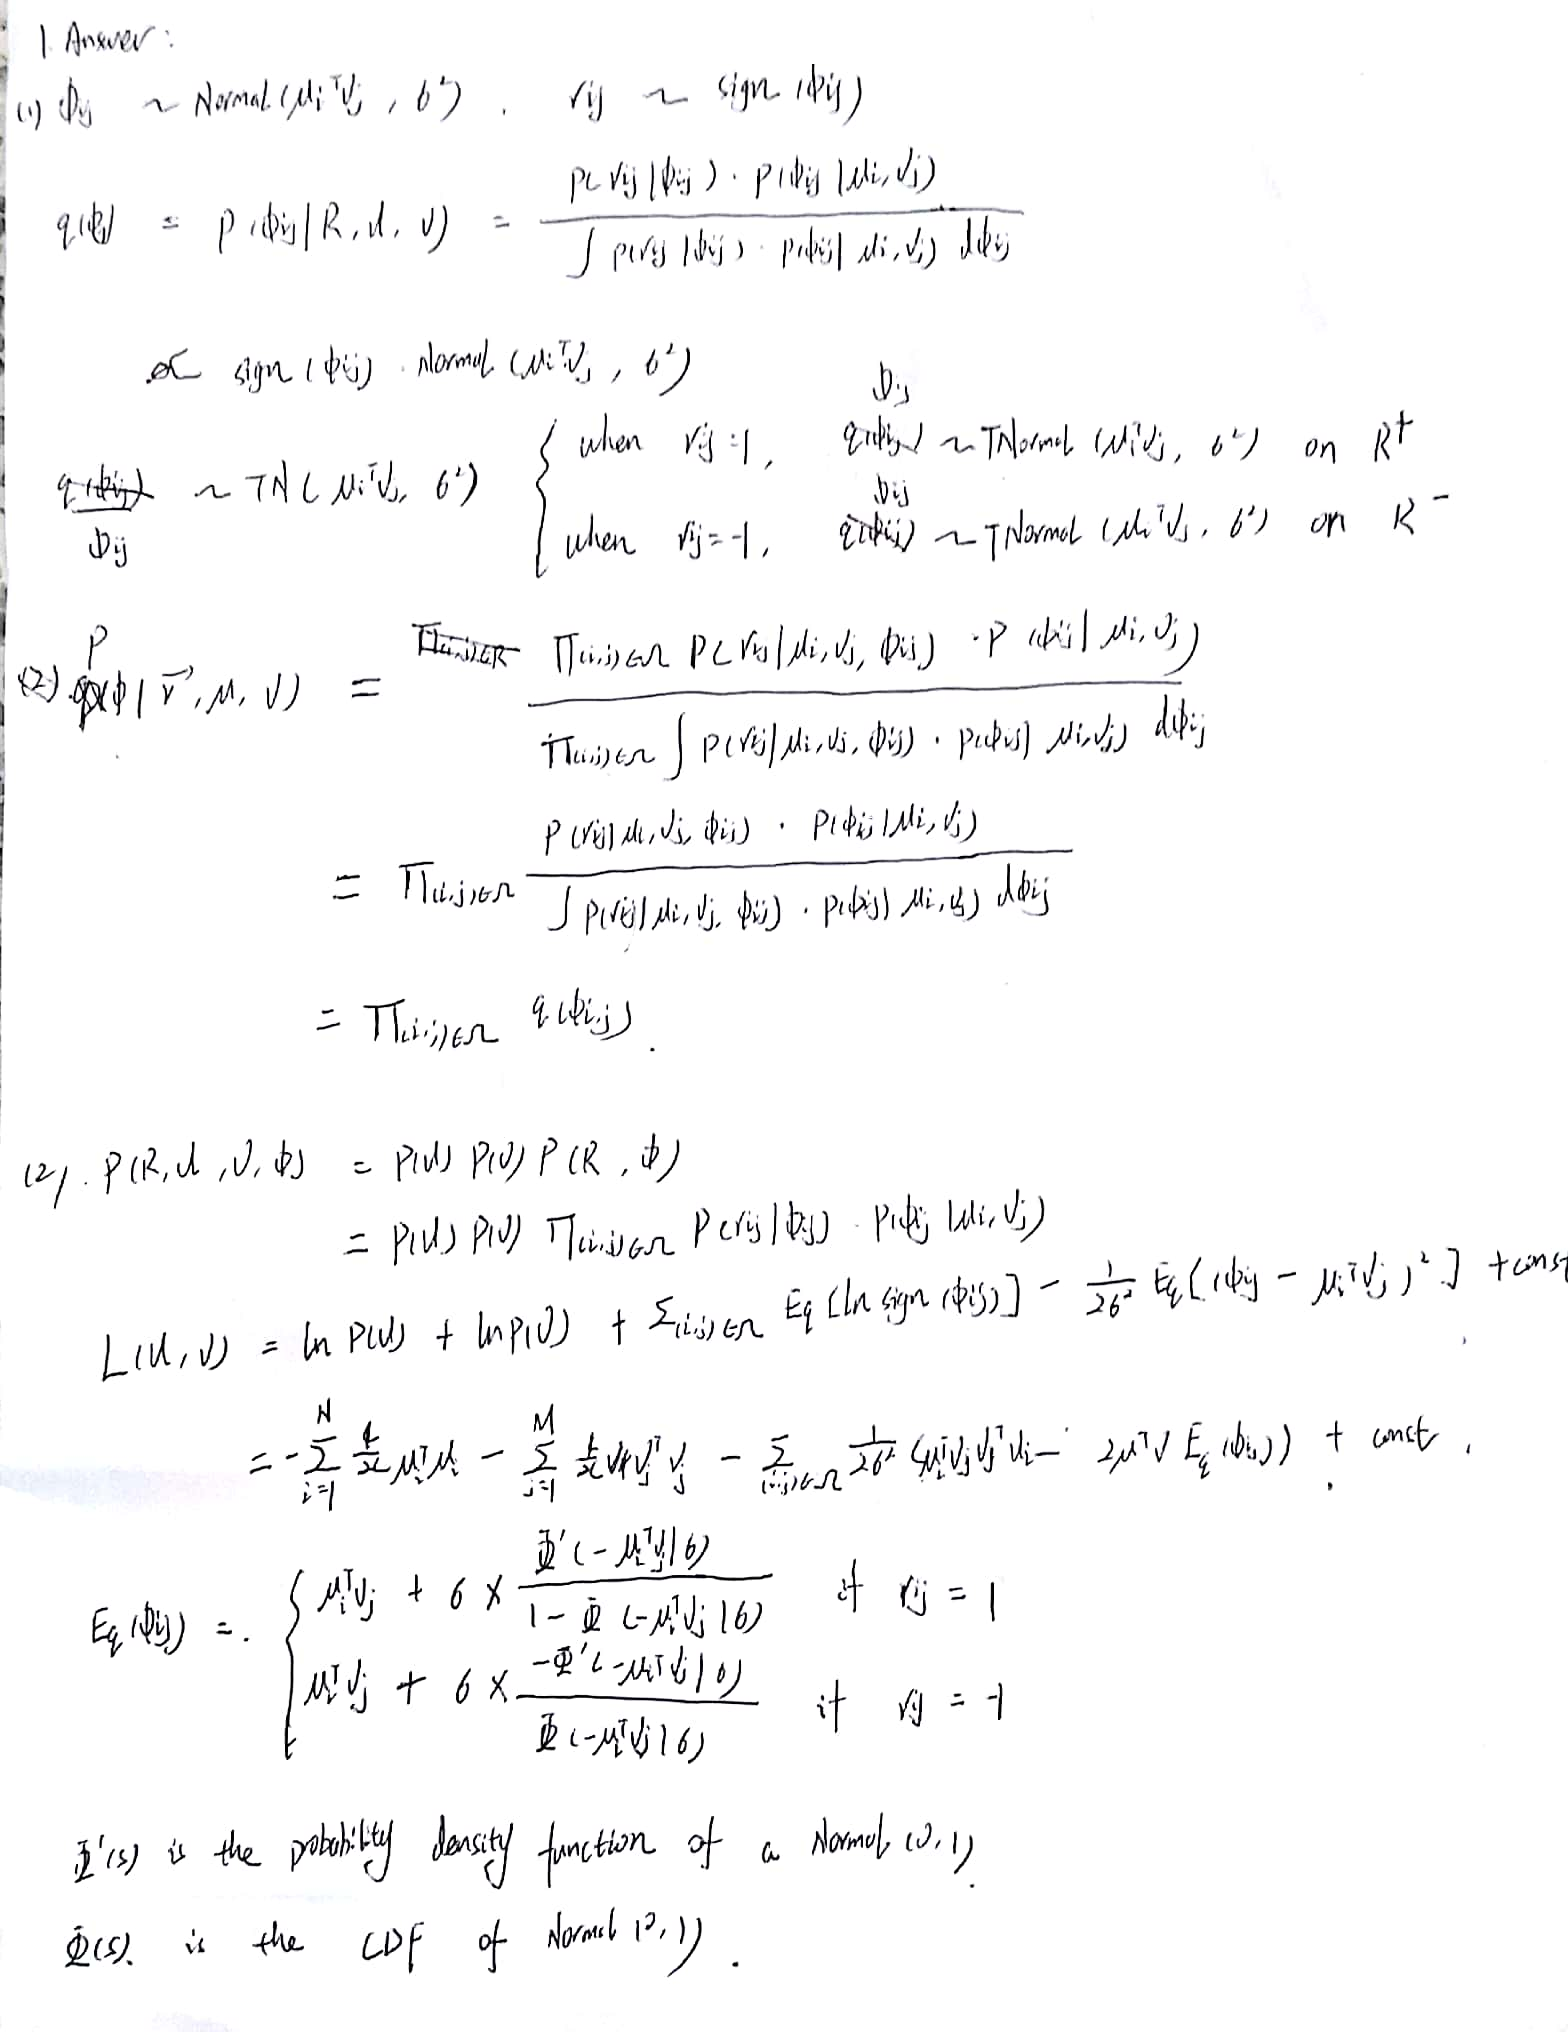 1. Answer:
(1) ϕij ~ Normal (μiᵀVj, σ²). rij ~ sign (ϕij)
q(ϕ) = p(ϕij|R, U, V) = p(rij|ϕij)·p(ϕij|μi,Vj) / ∫p(rij|ϕij)·p(ϕij|μi,Vj) dϕij
∝ sign(ϕij)·Normal(μiᵀVj, σ²)
ϕij ~ TN(μiᵀVj, σ²) { when rij=1, ϕij ~ TNormal (μiᵀVj, σ²) on R⁺
when rij=-1, ϕij ~ TNormal (μiᵀVj, σ²) on R⁻
(2) P(ϕ|r⃗, μ, V) = Π(i,j)∈Ω P(rij|μi,Vj, ϕij)·P(ϕij|μi,Vj) / Π(i,j)∈Ω ∫P(rij|μi,Vj, ϕij)·P(ϕij|μi,Vj) dϕij
= Π(i,j)∈Ω P(rij|μi,Vj, ϕij)·P(ϕij|μi,Vj) / ∫P(rij|μi,Vj, ϕij)·P(ϕij|μi,Vj) dϕij
= Π(i,j)∈Ω q(ϕij).
(2). P(R, U, V, ϕ) = P(U) P(V) P(R, ϕ)
= P(U) P(V) Π(i,j)∈Ω P(rij|ϕij)·P(ϕij|μi,Vj)
L(U, V) = ln P(U) + ln P(V) + Σ(i,j)∈Ω Eq[ln sign(ϕij)] - 1/2σ² Eq[(ϕij - μiᵀVj)²] + const
= -Σ_{i=1}^{N} μiᵀμi - Σ_{j=1}^{M} VjᵀVj - Σ(i,j)∈Ω 1/2σ² (μiᵀVjVjᵀμi - 2μᵀV Eq(ϕij)) + const.
Eq(ϕij) = { μiᵀVj + σ × Φ'(-μiᵀVj/σ) / 1-Φ(-μiᵀVj/σ) if rij = 1
μiᵀVj + σ × -Φ'(-μiᵀVj/σ) / Φ(-μiᵀVj/σ) if rij = -1
Φ'(s) is the probability density function of a Normal (0,1).
Φ(s). is the CDF of Normal (0,1).